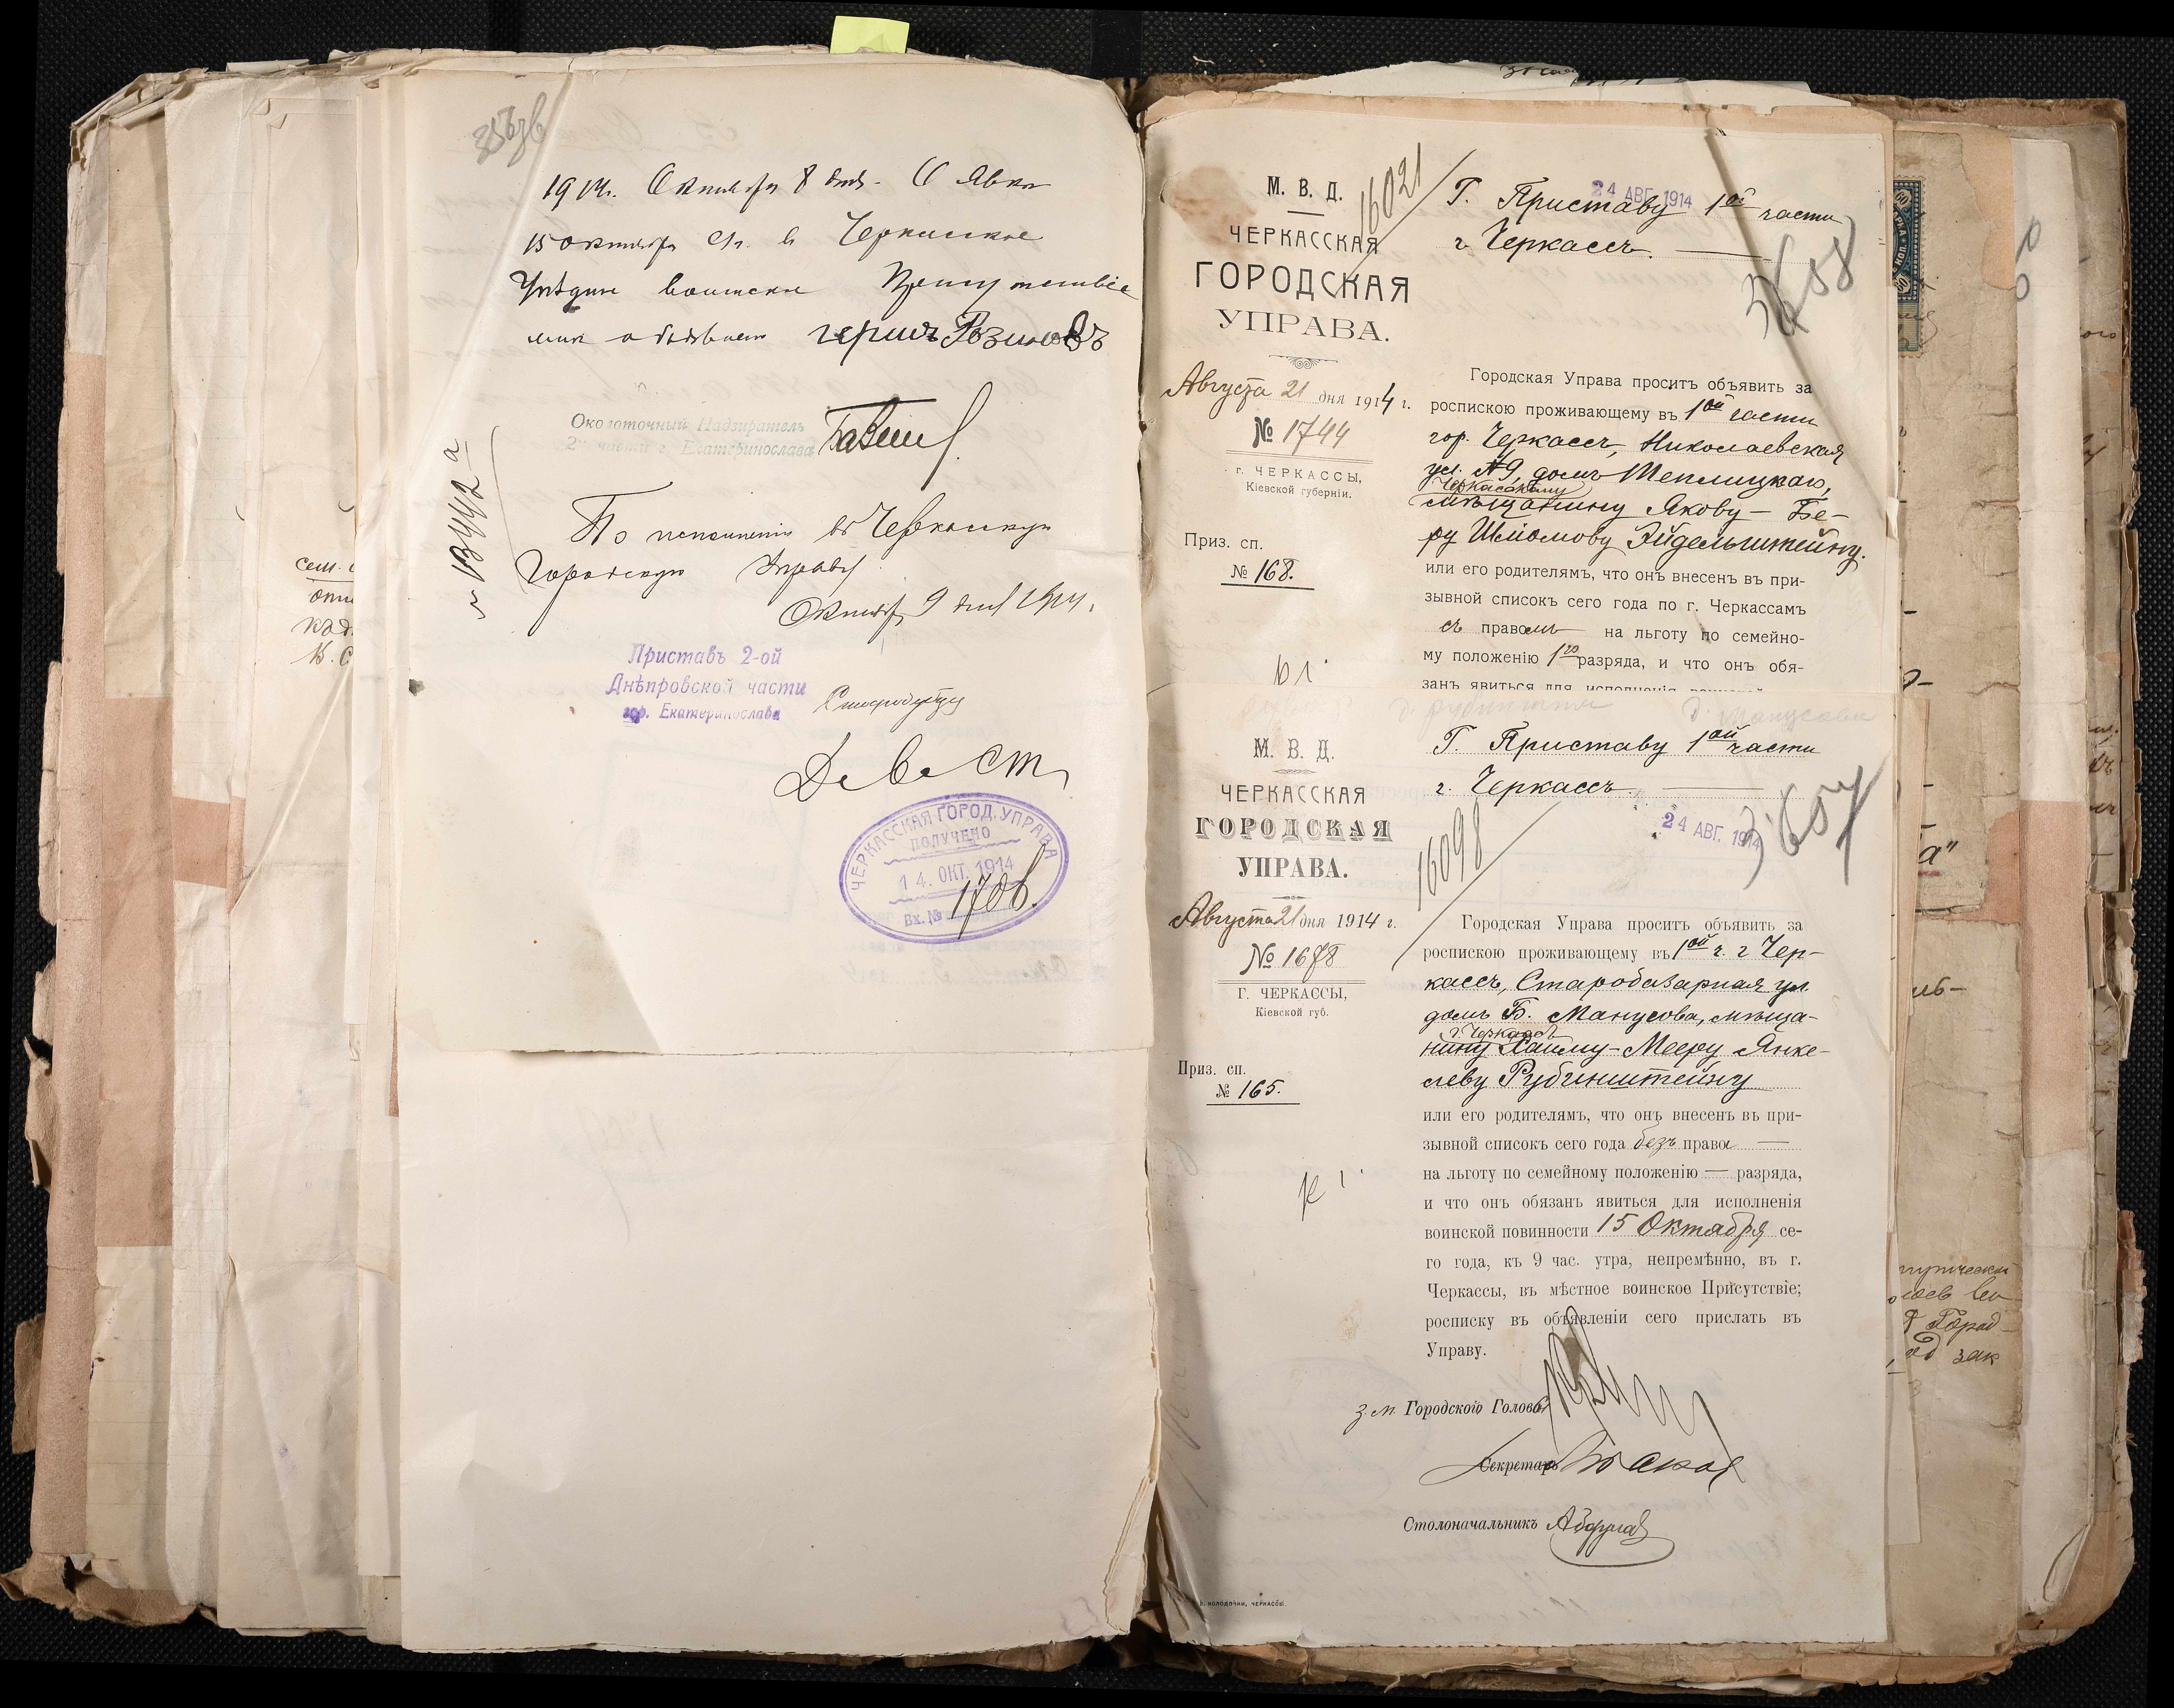 1914. Октября 8 дня. О явке
15 октября с/г. в Черкасское
Уѣздное воинское Присутствіе
мнѣ объявлено Герш Розиновъ
Околоточный Надзиратель
2 части г. Екатеринослава
По исполненіи въ Черкасскую
Городскую Управу
Октября 9 дня 1914.
Приставъ 2-ой
Днѣпровской части
гор. Екатеринослава
ЧЕРКАССКАЯ ГОРОД. УПРАВА
ПОЛУЧЕНО
14. ОКТ. 1914
Вх. №
М. В. Д.
ЧЕРКАССКАЯ
ГОРОДСКАЯ
УПРАВА.
Августа 21 дня 1914 г.
№ 1744
г. ЧЕРКАССЫ,
Кіевской губерніи.
Приз. сп.
№ 168.
16021
24 АВГ. 1914
Г. Приставу 1ой части
г. Черкассъ.
3658
Городская Управа проситъ объявить за
роспискою проживающему въ 1ой части
гор. Черкассъ, Николаевская
ул. №9, домъ Теплицкаго,
Черкасскому
мѣщанину Якову-Бе-
ру Шліомову Эйдельштейну.
или его родителямъ, что онъ внесенъ въ при-
зывной списокъ сего года по г. Черкассамъ
съ правомъ на льготу по семейно-
му положенію 1го разряда, и что онъ обя-
занъ явиться для исполненія
М. В. Д.
ЧЕРКАССКАЯ
ГОРОДСКАЯ
УПРАВА.
Августа 21 дня 1914 г.
№ 1678
Г. ЧЕРКАССЫ,
Кіевской губ.
Приз. сп.
№ 165.
Г. Приставу 1ой части
г. Черкассъ.
16098
24 АВГ. 1914
3657
Городская Управа проситъ объявить за
роспискою проживающему въ 1ой ч. г Чер-
кассъ, Старобазарная ул.
домъ Б. Манусова, мѣща-
г. Черкассъ
нину Хаиму-Мееру Янке-
леву Рубинштейну
или его родителямъ, что онъ внесенъ въ при-
зывной списокъ сего года безъ права —
на льготу по семейному положенію — разряда,
и что онъ обязанъ явиться для исполненія
воинской повинности 15 Октября се-
го года, къ 9 час. утра, непремѣнно, въ г.
Черкассы, въ мѣстное воинское Присутствіе;
росписку въ объявленіи сего прислать въ
Управу.
з.м. Городского Головы
Секретарь
Столоначальникъ